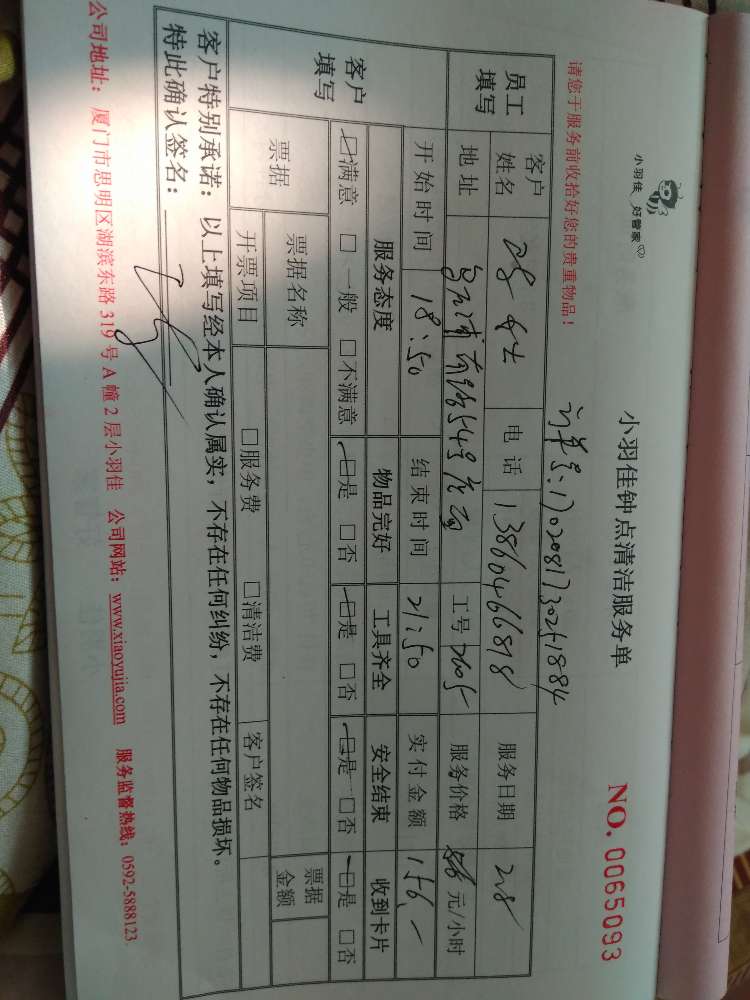 小羽佳 好管家
小羽佳钟点清洁服务单
NO. 0065093
请您于服务前收拾好您的贵重物品！
订单号:17020817302451884
员工填写 客户姓名 女士 电话 13860466818 服务日期 2.8
地址 549号 工号 2605 服务价格 元/小时
客户填写 开始时间 18:50 结束时间 21:50 实付金额 156.-
服务态度 物品完好 工具齐全 安全结束 收到卡片
☑满意 □一般 □不满意 ☑是 □否 ☑是 □否 ☑是 □否 ☑是 □否
票据 票据名称 票据金额
开票项目 □服务费 □清洁费 客户签名
客户特别承诺：以上填写经本人确认属实，不存在任何纠纷，不存在任何物品损坏。
特此确认签名：
公司地址：厦门市思明区湖滨东路 319 号 A 幢 2 层小羽佳 公司网站：www.xiaoyujia.com 服务监督热线：0592-5888123